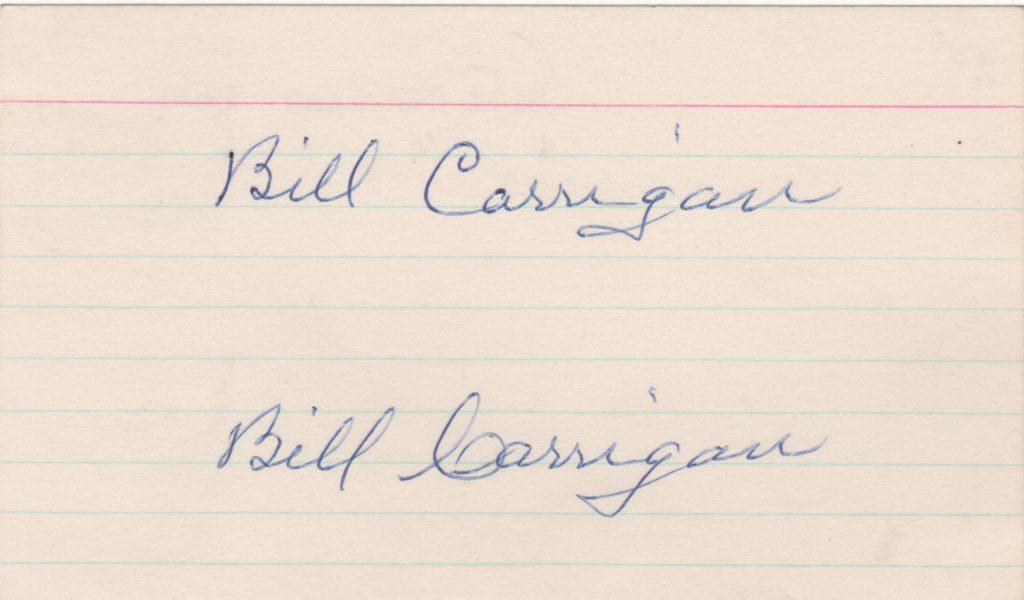 Bill Carrigan
Bill Carrigan